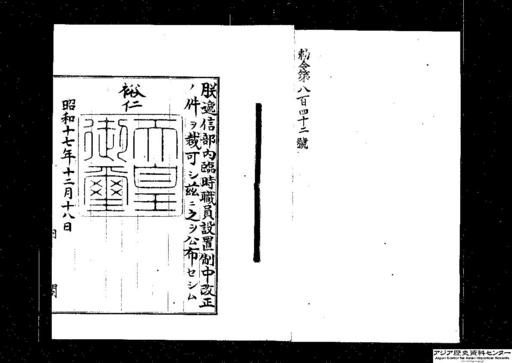 勅令第八百四十二號
朕遞信部內臨時職員設置制中改正
ノ件ヲ裁可シ茲ニ之ヲ公布セシム
裕仁
天皇
御璽
昭和十七年十二月十八日
内閣
アジア歴史資料センター
Japan Center for Asian Historical Records